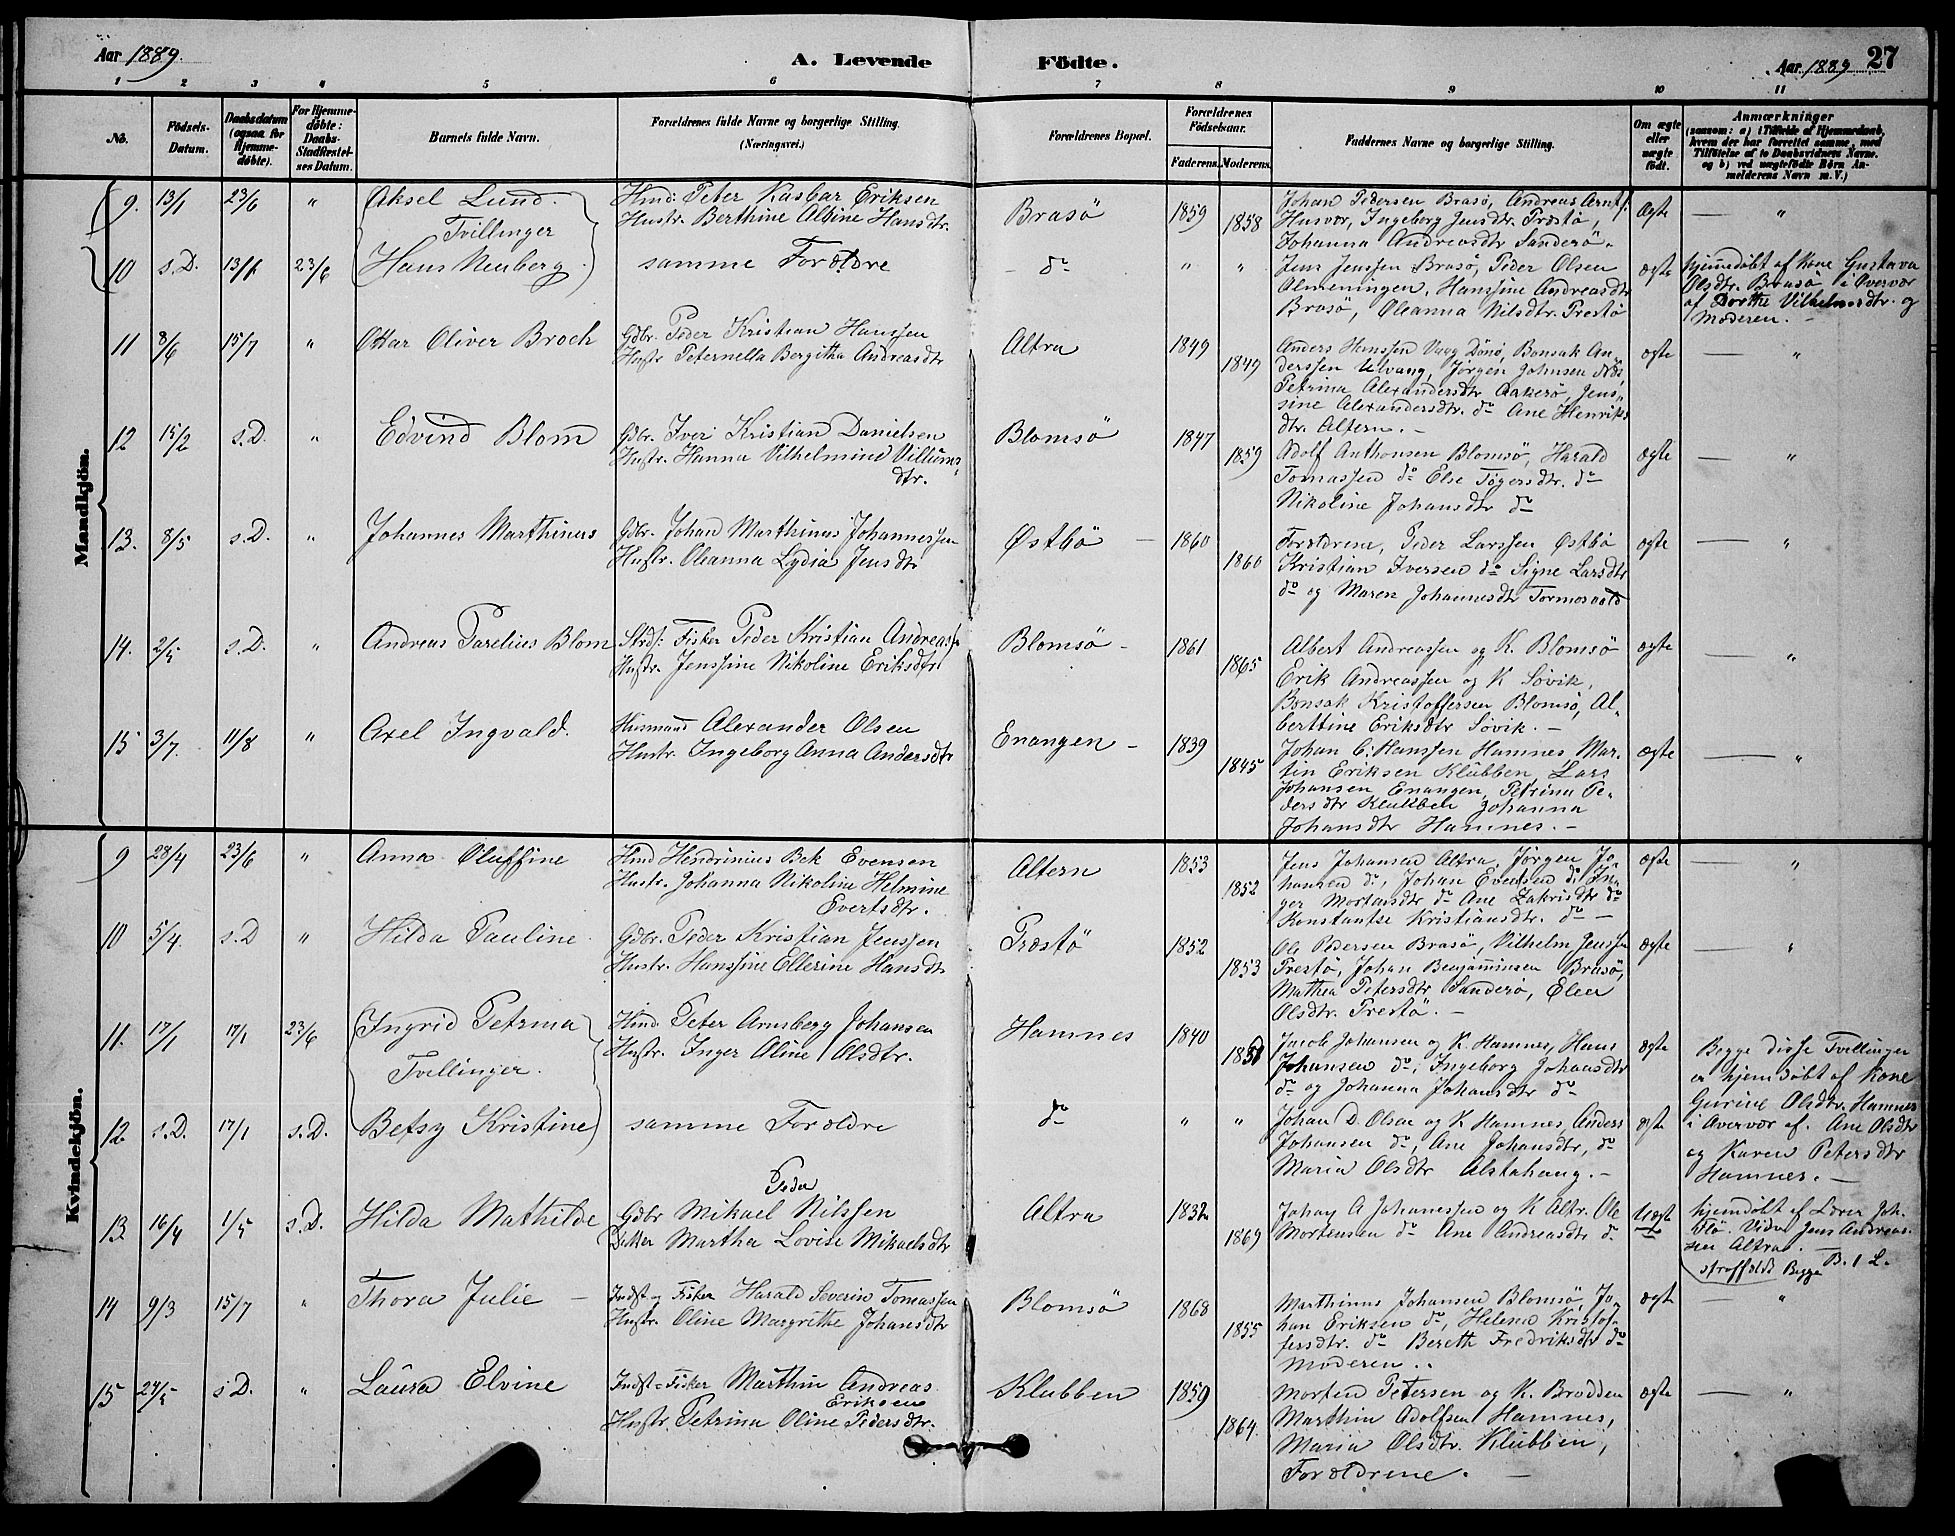 Aar 1889. A. Levende Födte. Aar 1889 27
1 2 3 4 5 6 7 8 9 10 11
No. Födsels-Datum. Daabsdatum (ogsaa for Hjemmedöbte). For Hjemmedöbte: Daabs-Stadfæstelses Datum. Barnets fulde Navn. Forældrenes fulde Navne og borgerlige Stilling. (Næringsvei.) Forældrenes Bopæl. Forældrenes Födselsaar. Faderens. Moderens. Faddernes Navne og borgerlige Stilling. Om ægte eller uægte födt. Anmærkninger (saasom: a) i Tilfælde af Hjemmedaab, hvem der har forrettet samme, med Tilföielse af to Daabsvidners Navne, og b) ved uægtefödte Börn Anmelderens Navn m. V.)
Mandkjön.
9. 13/1 23/6 " Aksel Lund. Hmd: Peter Kasbar Eriksen Brasö 1859 1858 Johan Pedersen Brasö, Andreas Arntz. Ægte — "
Tvillinger Hustr. Berthine Albine Hansdtr. Husvær, Ingeborg Jensdtr Præstö,
Johanna Andreasdtr Sanderö.
10 s.D. 13/1 23/6 Hans Neuberg samme Forældre do " " Jens Jenssen Brasö, Peder Olsen ægte hjemmedöbt af Kone Gustava
Olsdtr. Brasö i Overvær
Almeningen, Hanssine Andreasdtr af Dorthe Vilhelmsdtr. og
Brasö, Oleanna Nilsdtr. Prestö Moderen. —
11 8/6 15/7 " Ottar Oliver Broch Gdbr. Peder Kristian Hanssen Altra 1849 1849 Anders Hanssen Vaag Dönö, Bonsak An- ægte — "
Hustr Peternella Bergitha Andreasdtr derssen Ulvang, Jørgen Johnsen
Petrina Alexandersdtr Aakerö, Jens-
sine Alexandersdtr. do Ane Henriks
dtr. Altern. —
12 15/2 s.D. " Edvind Blom Gdbr. Iver Kristian Danielsen Blomsö 1847 1859 Adolf Anthonsen Blomsö, Harald ægte — "
Hustr. Hanna Vilhelmine Villums- Tomassen do Else Tögersdtr. do
dtr. Nikoline Johansdtr do
13. 8/5 s.D. " Johannes Marthinus Gdbr. Johan Marthinus Johannessen Østbö — 1860 1860 Forældrene, Peder Larssen Østbö ægte — "
Hustr. Oleanna Lydia Jensdtr Kristian Iversen do Signe Larsdtr
do og Maren Johannesdtr
14. 2/5 s.D. " Andreas Parelius Blom Strds: Fisker Peder Kristian Andreass. Blomsö — 1861 1865 Albert Andreassen og K. Blomsö ægte — "
Hustr. Jenssine Nikoline Eriksdtr Erik Andreassen og K Sövik,
Bonsak Kristoffersen Blomsö, Al-
berttine Eriksdtr Sövik. —
15 3/7. 11/8 " Axel Ingvald. Husmand Alexander Olsen Enangen — 1839 1845 Johan C. Hanssen Hamnes, Mar- ægte — "
Hustr. Ingeborg Anna Andersdtr tin Eriksen Klubben, Lars
Johansen Enangen, Petrina Pe-
dersdtr Klubben Johanna
Johansdtr Hamnes. —
Kvindekjön.
9 28/4 23/6 " Anna Oluffine Hmd Hendrinius Bek Evensen Altern 1853 1852 Jens Johansen Altra, Jørgen Jo- ægte — "
Hustr. Johanna Nikoline Helmine hansen do, Johan Evensen do In-
Evertsdtr. ger Mortensdtr do Ane Zakrisdtr do
Konstantse Kristiansdtr. do —
10 5/4. s.D " Hilda Pauline. Gdbr. Peder Kristian Jenssen Præstö 1852 1853 Ole Pedersen Brasö, Vilhelm Jenssen ægte — "
Hustr. Hanssine Ellerine Hansdtr Prestö, Johan Benjaminsen Brasö,
Mathea Petersdtr Sanderö, Elen
Olsdtr. Prestö. —
11. 17/1 17/1 23/6 Ingrid Petrina Hmd. Peter Arnsberg Johansen Hamnes 1840 Jacob Johansen og K. Hamnes, Hans ægte Begge disse Tvillinger
Tvillinger. Hustr. Inger Oline Olsdtr. Johansen do, Ingeborg Johansdtr er hjemdöbt af Kone
do og Johanna Johansdtr do Gurine Olsdtr. Hamnes
12. s.D. 17/1 s.D. Betsy Kristine samme Forældre do " " Johan D. Olsen og K. Hamnes, Anders ægte i Overvær af. Ane Olsdtr
Johansen do, Ane Johansdtr, do og Karen Petersdtr
Maria Olsdtr Alstahaug. — Hamnes. —
13. 16/4 1/5 s.D. Hilda Mathilde Gdbr Peder Mikael Nilssen Altra 1832 1869 Johan A Johanessen og K Altr. Ole Uægte hjemdöbt af Lærer Joh.
Datter Martha Lovise Mikaelsdtr Mortensen do Ane Andreasdtr do Flö. Vidne Jens Andreas-
sen Altra. —
straffældt Begge B. 1 L.
14 9/3 15/7 " Thora Julie — Indst og Fisker Harald Severin Tomassen Blomsö 1868 1855 Marthinus Johansen Blomsö, Jo- ægte — "
Hustr. Oline Margrethe Johansdtr han Eriksen do, Helena Kristof-
fersdtr. do Bereth Fredriksdtr do
Moderen..
15 24/5 s.D. " Laura Elvine Indst = Fisker Marthin Andreas Eriksen Klubben 1859 1864. Morten Petersen og K. Brodden ægte — "
Hustr. Petrina Oline Pedersdtr. Marthin Adolfsen Hamnes,
Maria Olsdtr. Klubben,
Forældrene. —